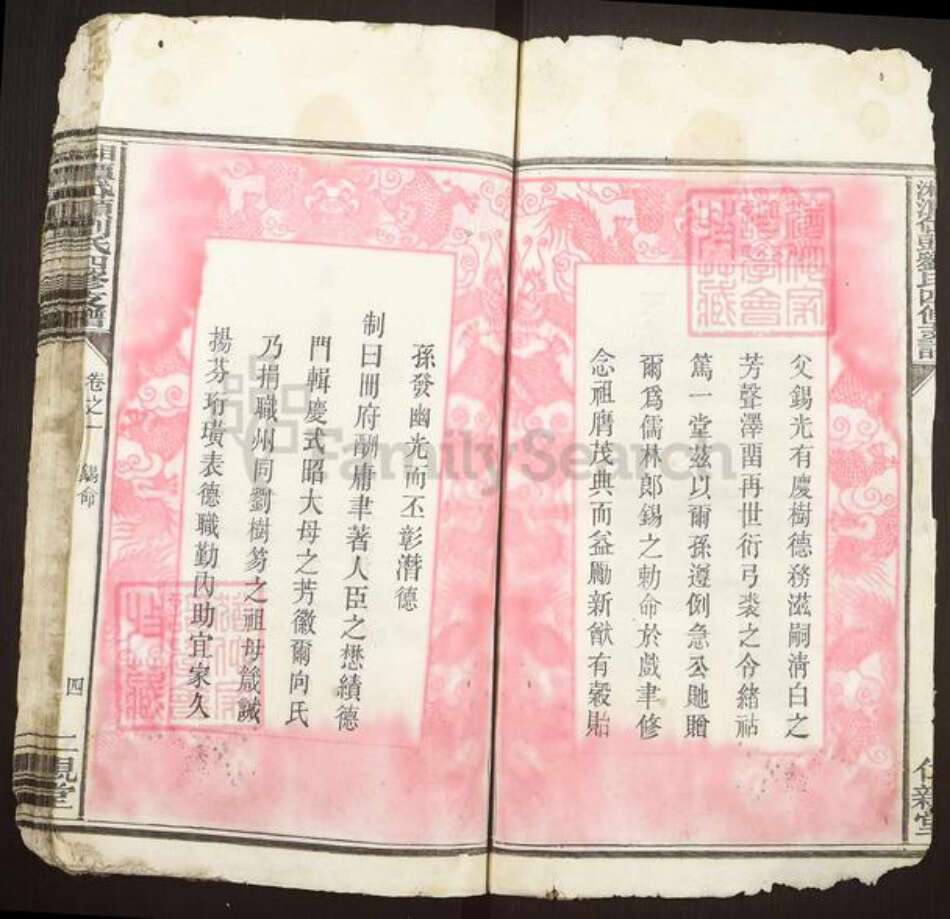 父錫光有慶樹德務滋嗣清白之
芳聲澤畱再世衍弓裘之令緒祜
篤一堂兹以爾孫遵例急公貤贈
爾爲儒林郎錫之勅命於戲聿修
念祖膺茂典而益勵新猷有穀貽
孫發幽光而丕彰潛德
制曰冊府酬庸聿著人臣之懋績德
門輯慶式昭大母之芳徽爾向氏
乃捐職州同劉樹芴之祖母箴誡
揚芬珩璜表德職勤內助宜家久
劉氏四修支譜
卷之一
錫命
四
FamilySearch